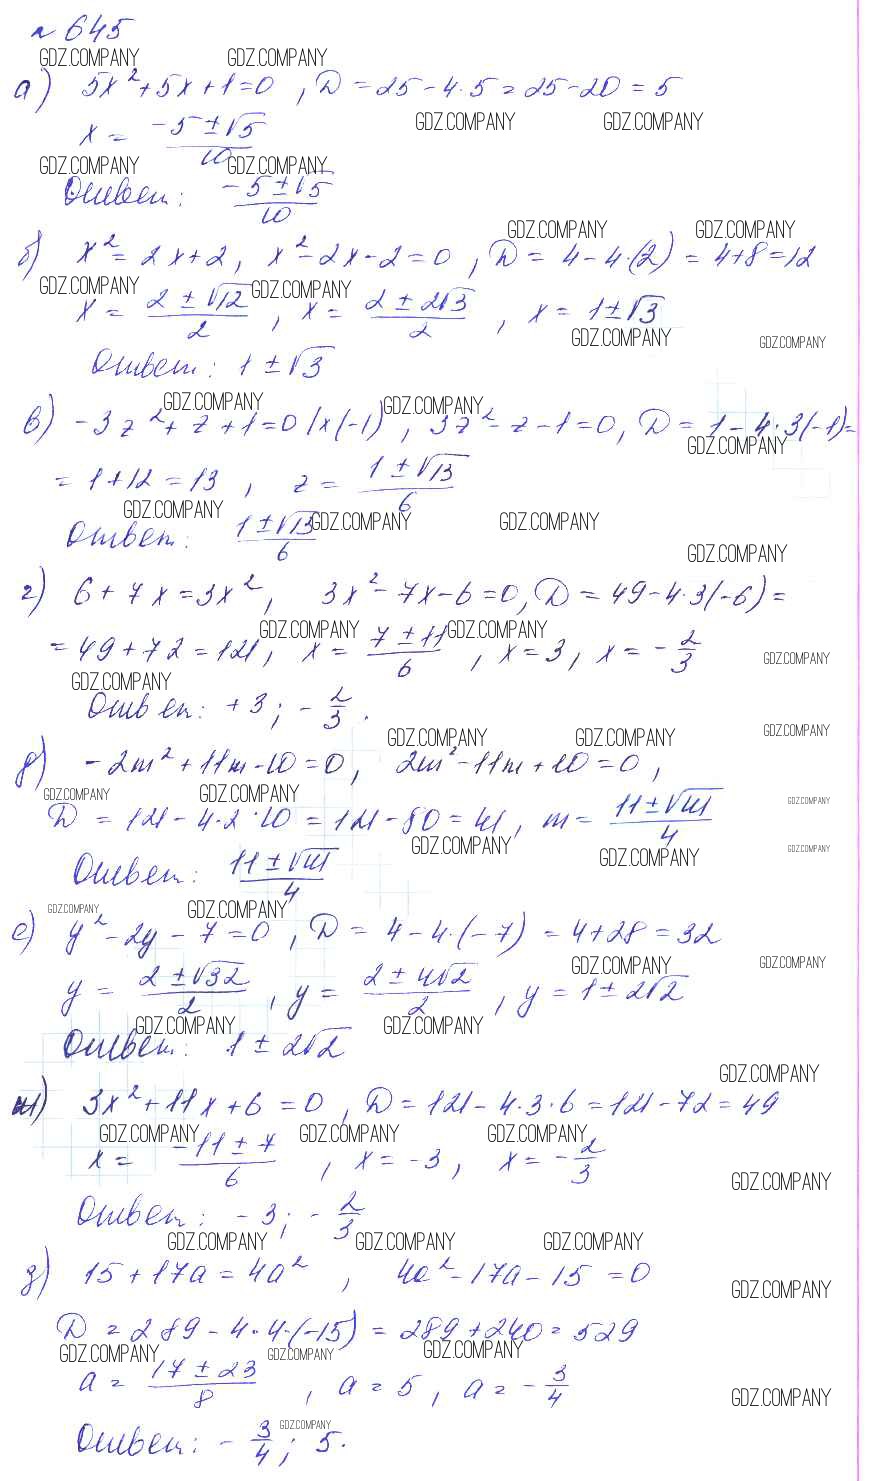 № 645
GDZ.COMPANY GDZ.COMPANY
а) 5x² + 5x + 1 = 0 , D = 25 - 4·5 = 25 - 20 = 5
GDZ.COMPANY GDZ.COMPANY
x = (-5 ± √5)/10
GDZ.COMPANY GDZ.COMPANY
Ответ: (-5 ± √5)/10
GDZ.COMPANY GDZ.COMPANY
б) x² = 2x + 2, x² - 2x - 2 = 0 , D = 4 - 4·(2) = 4 + 8 = 12
GDZ.COMPANY GDZ.COMPANY
x = (2 ± √12)/2 , x = (2 ± 2√3)/2 , x = 1 ± √3
GDZ.COMPANY GDZ.COMPANY
Ответ: 1 ± √3
GDZ.COMPANY GDZ.COMPANY
в) -3z² + z + 1 = 0 /×(-1) , 3z² - z - 1 = 0, D = 1 - 4·3(-1) =
GDZ.COMPANY
= 1 + 12 = 13 , z = (1 ± √13)/6
GDZ.COMPANY GDZ.COMPANY GDZ.COMPANY
Ответ: (1 ± √13)/6
GDZ.COMPANY
г) 6 + 7x = 3x², 3x² - 7x - 6 = 0, D = 49 - 4·3(-6) =
GDZ.COMPANY GDZ.COMPANY
= 49 + 72 = 121, x = (7 ± 11)/6 , x = 3, x = -2/3
GDZ.COMPANY GDZ.COMPANY
Ответ: +3; -2/3.
GDZ.COMPANY GDZ.COMPANY GDZ.COMPANY
д) -2m² + 11m - 10 = 0, 2m² - 11m + 10 = 0,
GDZ.COMPANY GDZ.COMPANY GDZ.COMPANY
D = 121 - 4·2·10 = 121 - 80 = 41, m = (11 ± √41)/4
GDZ.COMPANY GDZ.COMPANY GDZ.COMPANY
Ответ: (11 ± √41)/4
GDZ.COMPANY GDZ.COMPANY
е) y² - 2y - 7 = 0 , D = 4 - 4·(-7) = 4 + 28 = 32
GDZ.COMPANY GDZ.COMPANY
y = (2 ± √32)/2 , y = (2 ± 4√2)/2 , y = 1 ± 2√2
GDZ.COMPANY GDZ.COMPANY
Ответ: 1 ± 2√2
GDZ.COMPANY
ж) 3x² + 11x + 6 = 0 , D = 121 - 4·3·6 = 121 - 72 = 49
GDZ.COMPANY GDZ.COMPANY GDZ.COMPANY
x = (-11 ± 7)/6 , x = -3, x = -2/3
GDZ.COMPANY
Ответ: -3; -2/3
GDZ.COMPANY GDZ.COMPANY GDZ.COMPANY
з) 15 + 17a = 4a² , 4a² - 17a - 15 = 0
GDZ.COMPANY
D = 289 - 4·4·(-15) = 289 + 240 = 529
GDZ.COMPANY GDZ.COMPANY GDZ.COMPANY
a = (17 ± 23)/8 , a = 5, a = -3/4
GDZ.COMPANY
GDZ.COMPANY
Ответ: -3/4; 5.